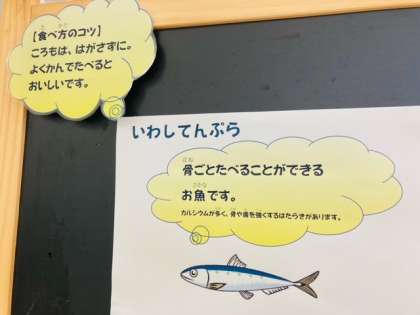 【食べ方のコツ】
ころもは、はがさずに。
よくかんでたべると
おいしいです。
いわしてんぷら
骨ごとたべることができる
お魚です。
カルシウムが多く、骨や歯を強くするはたらきがあります。